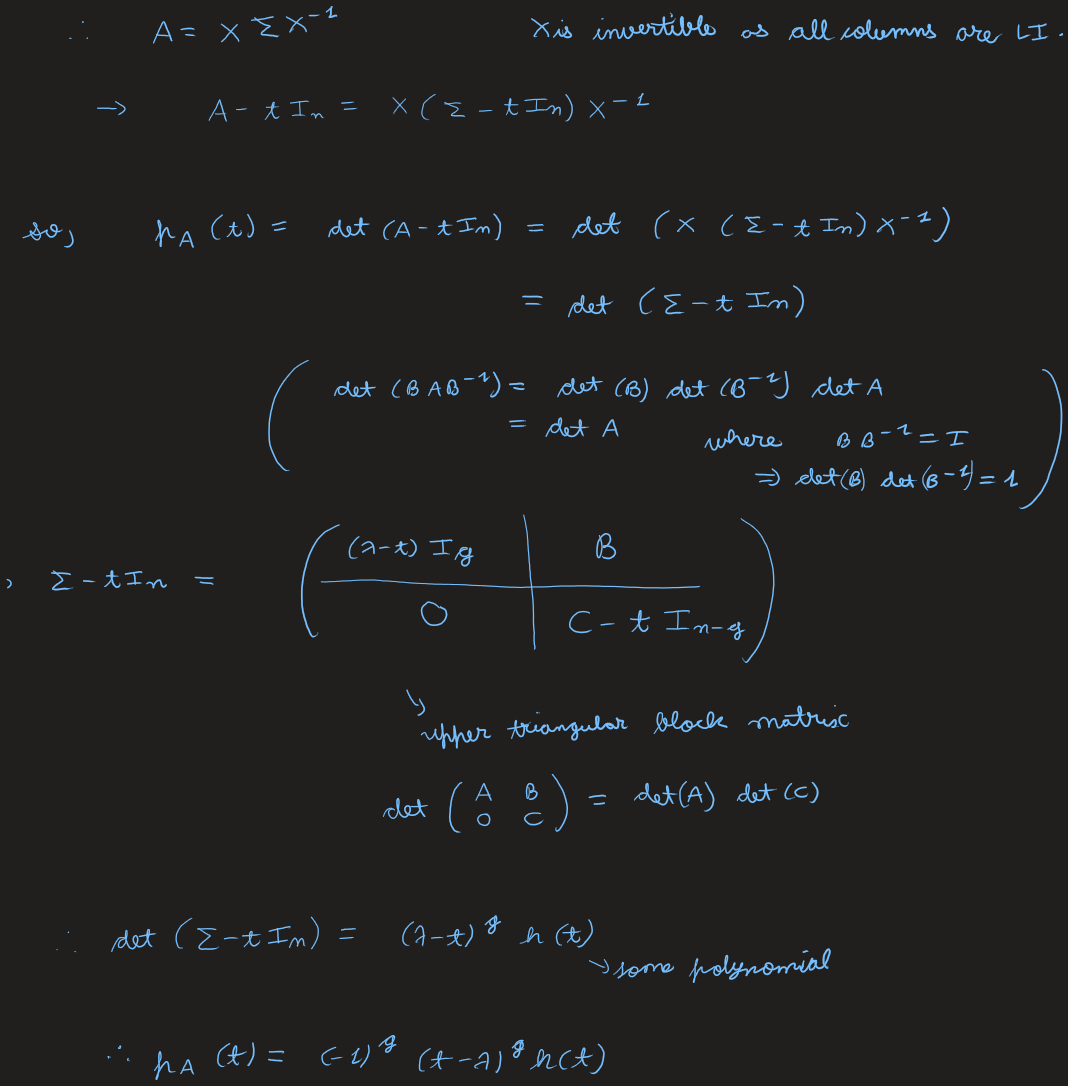 ∴ A = X Σ X⁻¹ X is invertible as all columns are LI.
→ A - t Iₙ = X ( Σ - t Iₙ ) X⁻¹
so, p_A (t) = det (A - t Iₙ) = det ( X ( Σ - t Iₙ ) X⁻¹ )
= det ( Σ - t Iₙ )
( det (B A B⁻¹) = det (B) det (B⁻¹) det A
= det A where B B⁻¹ = I
⇒ det(B) det (B⁻¹) = 1 )
, Σ - t Iₙ = ( (λ-t) I_g | B
0 | C - t I_{n-g} )
↳ upper triangular block matrix
det ( A B
0 C ) = det(A) det (C)
∴ det ( Σ - t Iₙ ) = (λ-t)^g h (t)
↳ some polynomial
∴ p_A (t) = (-1)^g (t-λ)^g h(t)